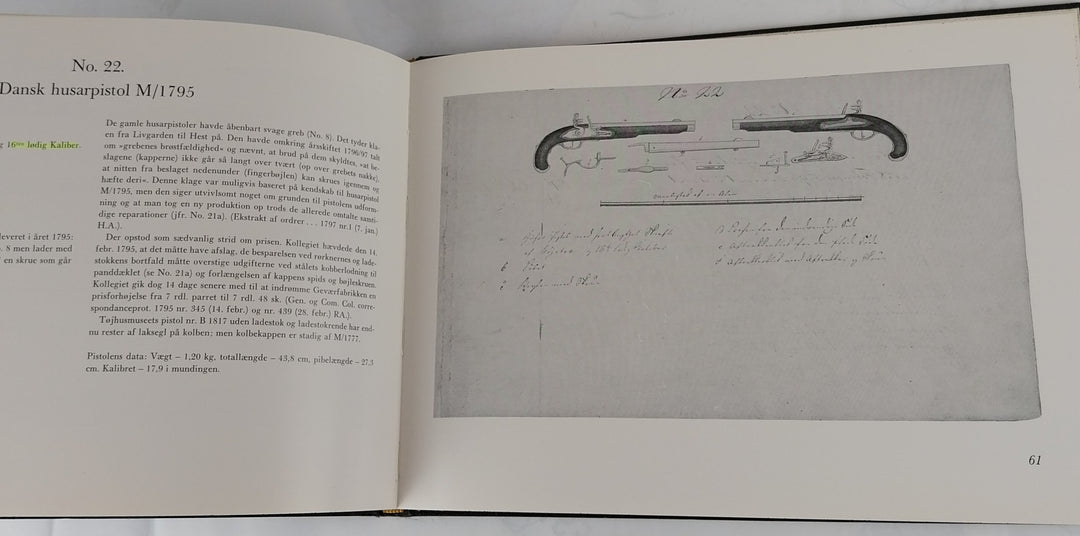 No. 22.
Dansk husarpistol M/1795
g 16ten lødig Kaliber.
leveret i året 1795:
. 8 men lader med
en skrue som går
De gamle husarpistoler havde åbenbart svage greb (No. 8). Det tyder kla-
en fra Livgarden til Hest på. Den havde omkring årsskiftet 1796/97 talt
om »grebenes brøstfældighed« og nævnt, at brud på dem skyldtes, »at be-
slagene (kapperne) ikke går så langt over tvært (op over grebets nakke),
at nitten fra beslaget nedenunder (fingerbøjlen) kan skrues igennem og
hæfte deri«. Denne klage var muligvis baseret på kendskab til husarpistol
M/1795, men den siger utvivlsomt noget om grunden til pistolens udform-
ning og at man tog en ny produktion op trods de allerede omtalte samti-
dige reparationer (jfr. No. 21a). (Ekstrakt af ordrer . . . 1797 nr.1 (7. jan.)
H.A.).
Der opstod som sædvanlig strid om prisen. Kollegiet hævdede den 14.
febr. 1795, at det måtte have afslag, de besparelsen ved rørknernes og lade-
stokkens bortfald måtte overstige udgifterne ved stålets kobberlodning til
panddæklet (se No. 21a) og forlængelsen af kappens spids og bøjleskruen.
Kollegiet gik dog 14 dage senere med til at indrømme Geværfabrikken en
prisforhøjelse fra 7 rdl. parret til 7 rdl. 48 sk. (Gen. og Com. Col. corre-
spondanceprot. 1795 nr. 345 (14. febr.) og nr. 439 (28. febr.) RA.).
Tøjhusmuseets pistol nr. B 1817 uden ladestok og ladestokrende har end-
nu rester af laksegl på kolben; men kolbekappen er stadig af M/1777.
Pistolens data: Vægt – 1,20 kg, totallængde – 43,8 cm, pibelængde – 27,5
cm. Kalibret – 17,9 i mundingen.
No 22
61